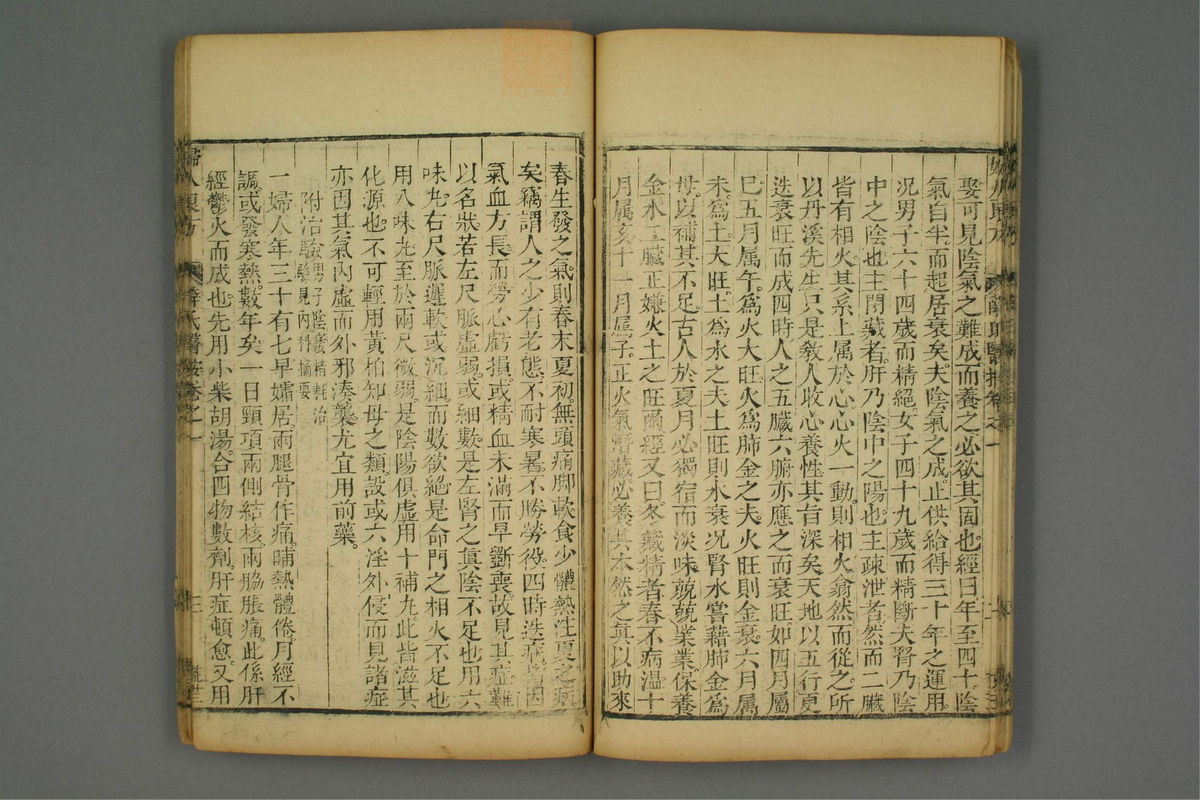 娶可見陰氣之難成而養之必欲其固也經日年至四十陰
氣自半而起居衰矣夫陰氣之成止供給得三十年之運用
况男子六十四歲而精絕女子四十九歲而精斷夫腎乃陰
中之陰也主閉藏者肝乃陰中之陽也主疎泄者然而二臟
皆有相火其系上属於心心火一動則相火翕然而從之所
以丹溪先生只是教人收心養性其旨深矣天地以五行更
迭衰旺而成四時人之五臟六腑亦應之而衰旺如四月屬
巳五月属午爲火大旺火爲肺金之夫火旺則金衰六月属
未爲土大旺土爲水之夫土旺則水衰况腎水嘗藉肺金爲
母以補其不足古人於夏月必獨宿而淡味兢兢業業保養
金水二臟正嫌火土之旺爾經又曰冬藏精者春不病温十
月属亥十一月属子正火氣潛藏必養其本然之眞以助來
春生發之氣則春末夏初無頭痛脚軟食少體熱注夏之病
矣竊謂人之少有老態不耐寒暑不勝勞役四時迭病皆因
氣血方長而勞心虧損或精血未滿而早斵喪故見其症難
以名狀若左尺脈虛弱或細數是左腎之眞陰不足也用六
味丸右尺脈遲軟或沉細而數欲絕是命門之相火不足也
用八味丸至於兩尺微弱是陰陽俱虛用十補丸此皆滋其
化源也不可輕用黃栢知母之類設或六淫外侵而見諸症
亦因其氣內虛而外邪湊襲尤宜用前藥
附治驗男子陰虛精耗治
驗見內科摘要
一婦人年三十有七早孀居兩腿骨作痛晡熱體倦月經不
調或發寒熱數年矣一日頸項兩側結核兩脇脹痛此係肝
經鬱火而成也先用小柴胡湯合四物數劑肝症頓愈又用
婦人良方 薛氏醫按卷之一